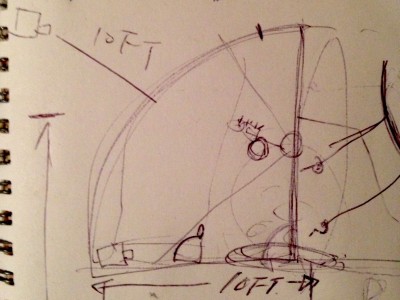 10FT
10FT